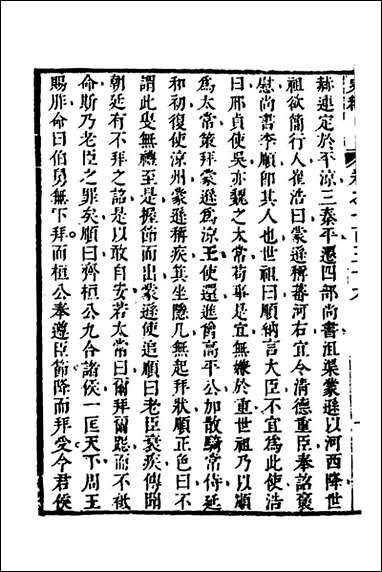 赫連定於平涼三秦平遷四部尚書沮渠蒙遜以河西降世
祖欲簡行人崔浩曰蒙遜稱蕃河右宜令清德重臣奉詔褒
慰尚書李順卽其人也世祖曰順納言大臣不宜爲此使浩
曰邢貞使吳亦魏之太常苟事是宜無嫌於重世祖乃以順
爲太常策拜蒙遜爲涼王使還進爵高平公加散騎常侍延
和初復使涼州蒙遜稱疾箕坐隱几無起拜狀順正色曰不
謂此叟無禮至是握節而出蒙遜使追順曰老臣衰疾傳聞
朝廷有不拜之詔是以敢自安若太常曰爾拜爾跽而不祗
命斯乃老臣之罪矣順曰齊桓公九合諸侯一匡天下周王
賜胙命曰伯舅無下拜而桓公奉遵臣節降而拜受今君侯